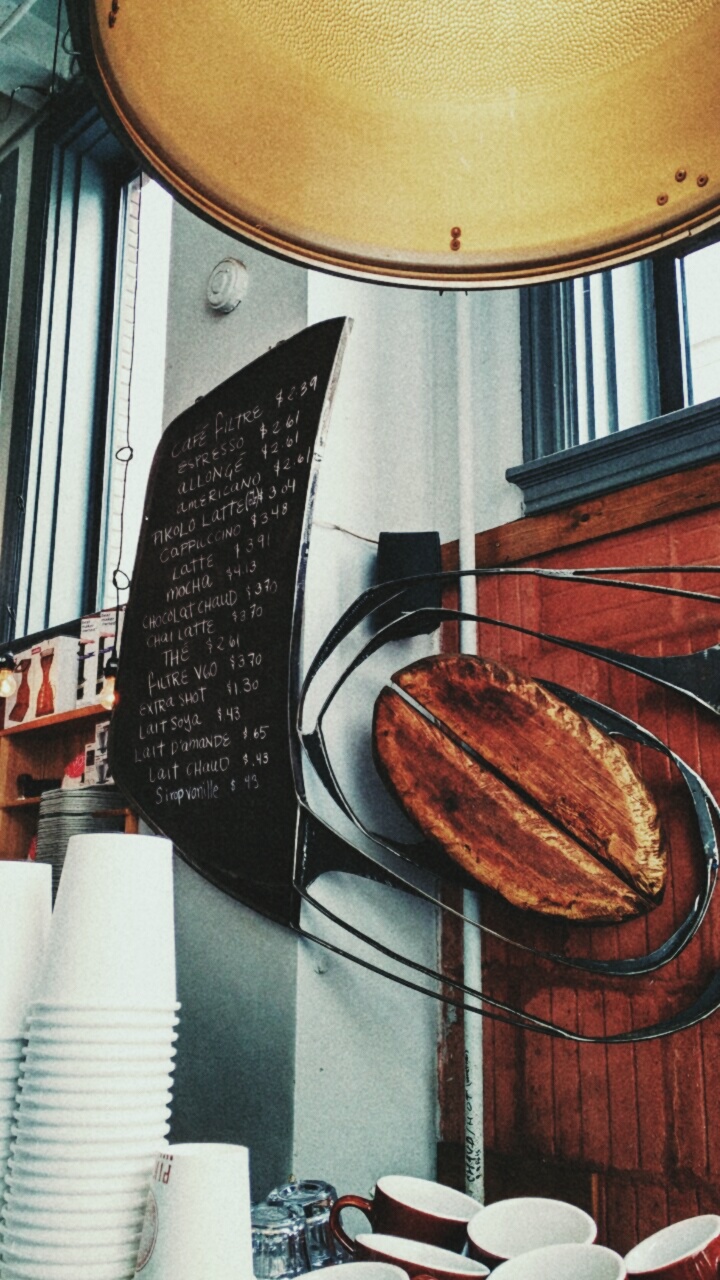 CAFÉ FILTRE $2.39
ESPRESSO $2.61
ALLONGÉ $2.61
AMERICANO $2.61
PIKOLO LATTE $3.04
CAPPUCCINO $3.48
LATTE $3.91
MOCHA $4.13
CHOCOLAT CHAUD $3.70
CHAI LATTE $3.70
THÉ $2.61
FILTRE V60 $3.70
EXTRA SHOT $1.30
LAIT SOYA $.43
LAIT D'AMANDE $.65
LAIT CHAUD $.43
Sirop vanille $.43